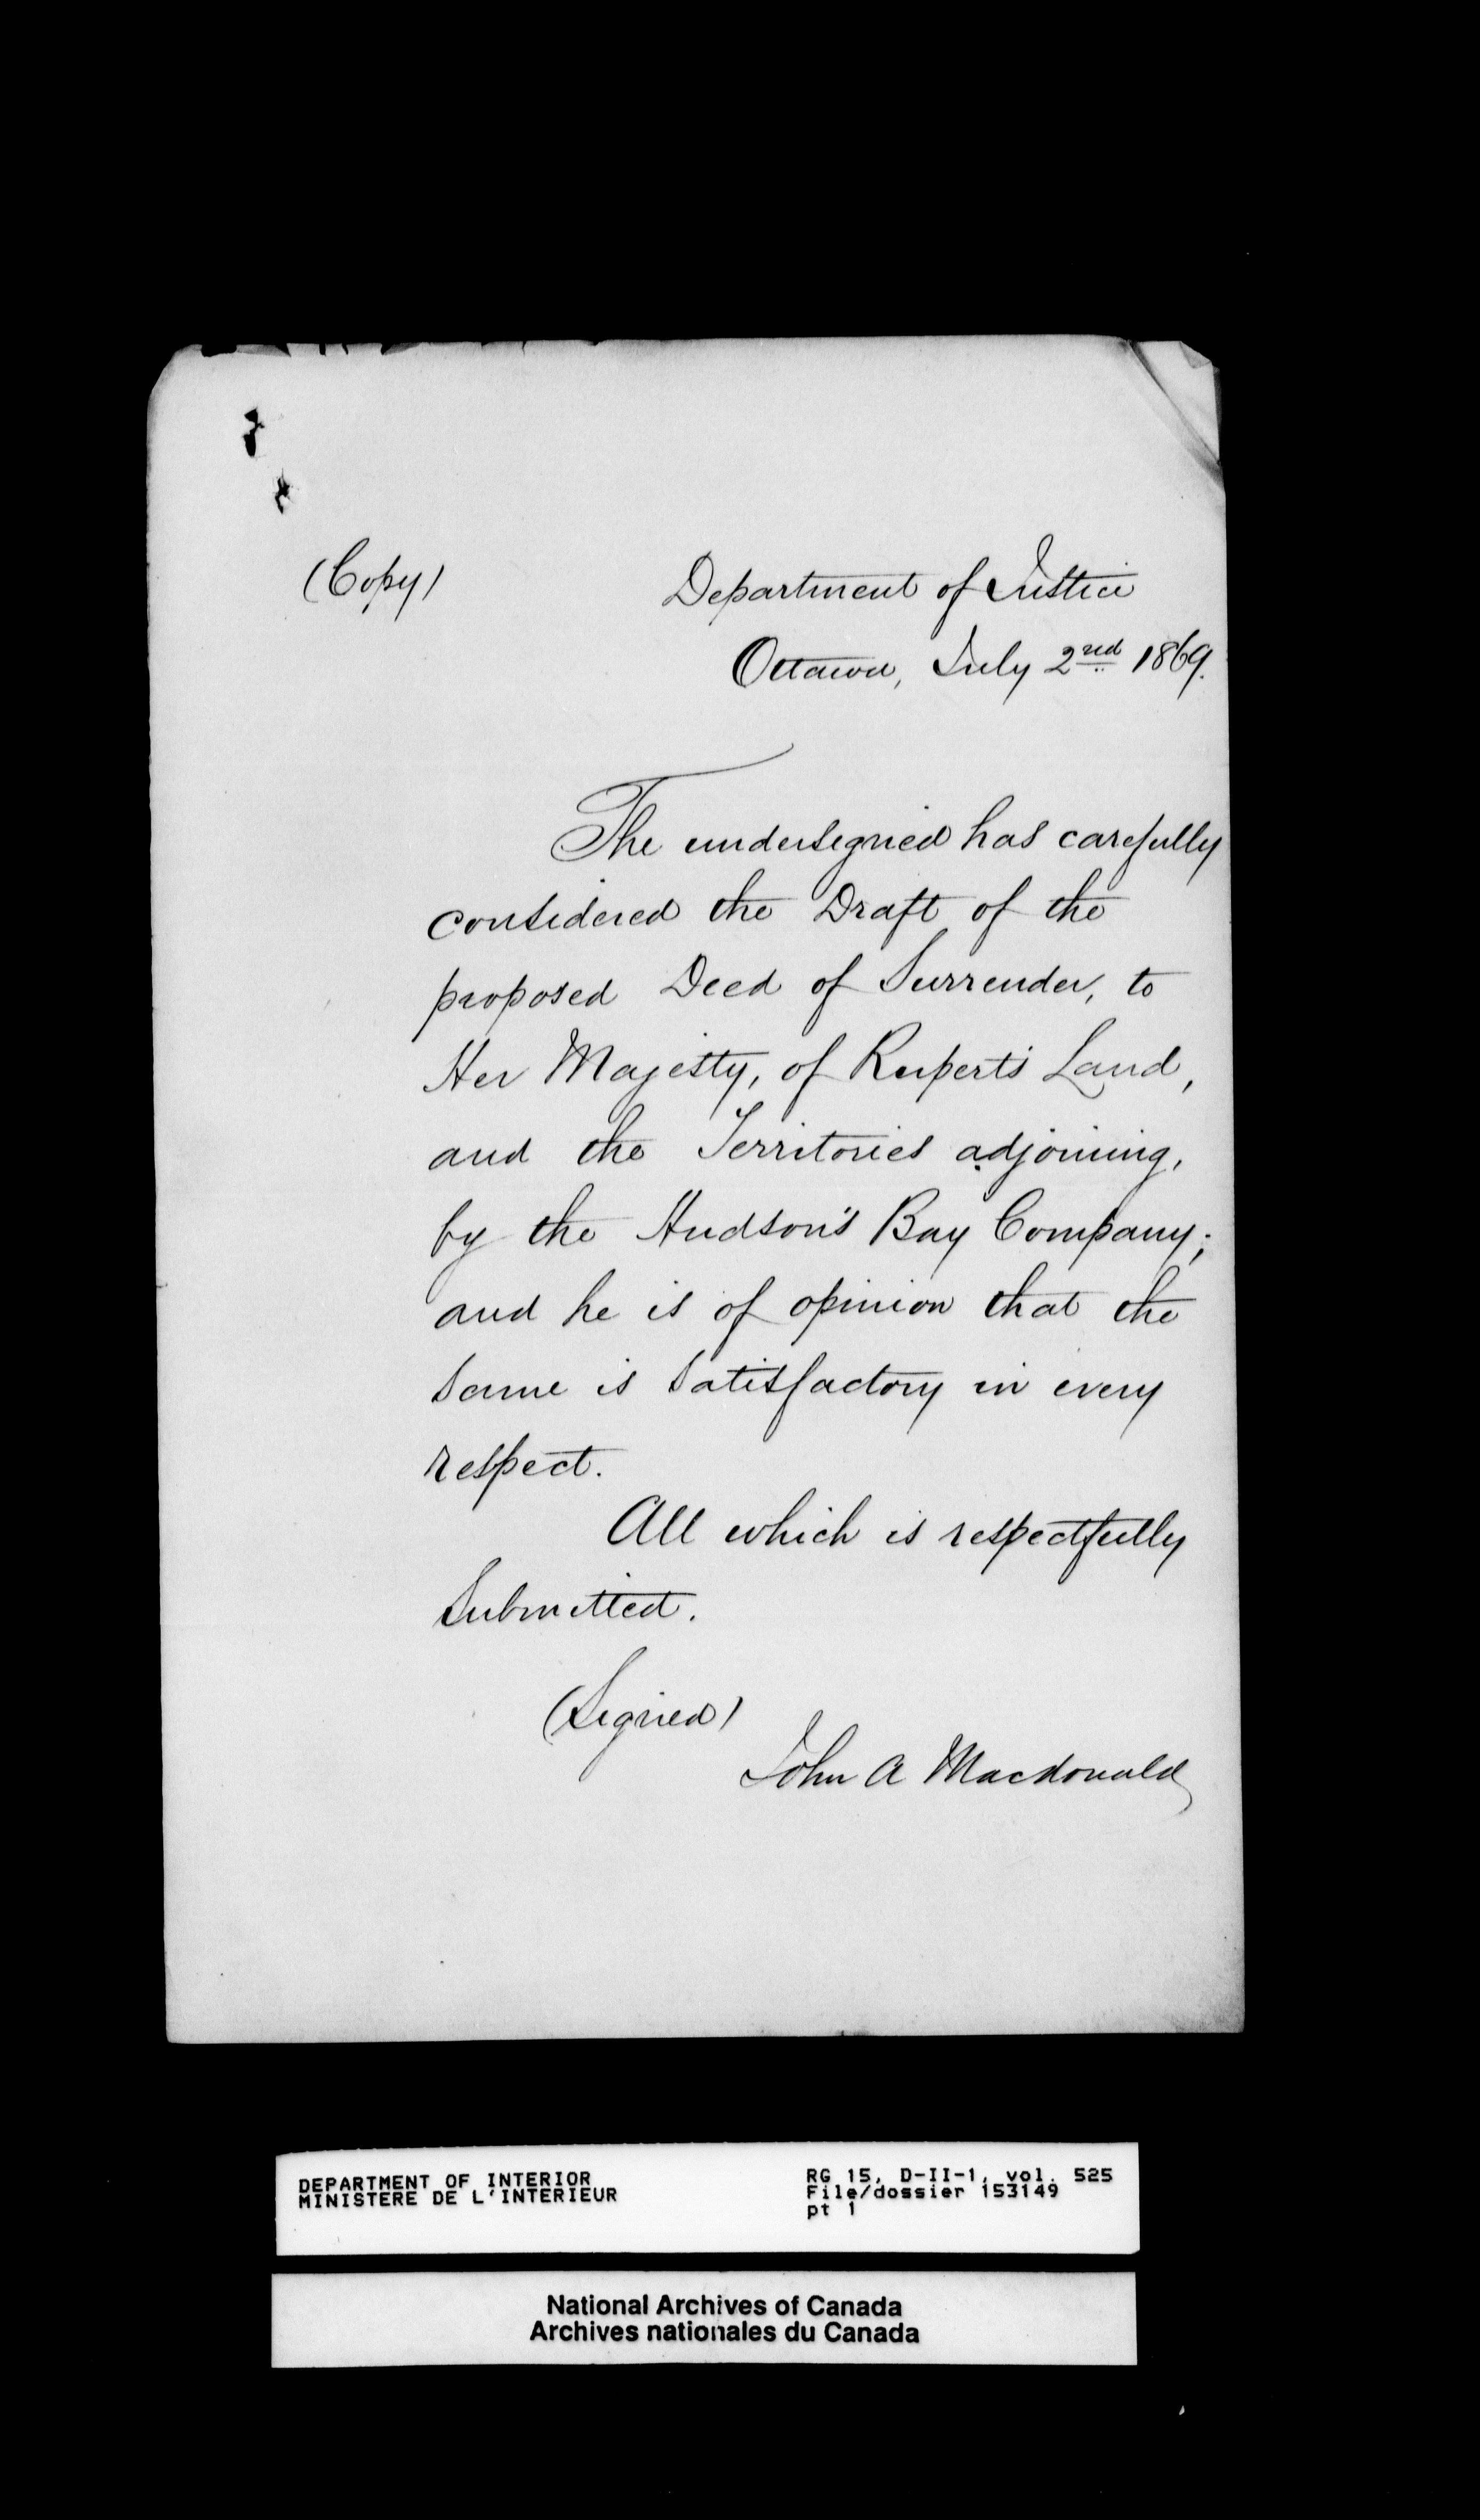 (Copy)
Department of Justice
Ottawa, July 2nd 1869.
The undersigned has carefully
considered the Draft of the
proposed Deed of Surrender, to
Her Majesty, of Rupert's Land,
and the Territories adjoining,
by the Hudson's Bay Company;
and he is of opinion that the
same is satisfactory in every
respect.
All which is respectfully
Submitted.
(Signed)
John A Macdonald
DEPARTMENT OF INTERIOR
MINISTERE DE L'INTERIEUR
RG 15, D-II-1, vol. 525
File/dossier 153149
pt 1
National Archives of Canada
Archives nationales du Canada